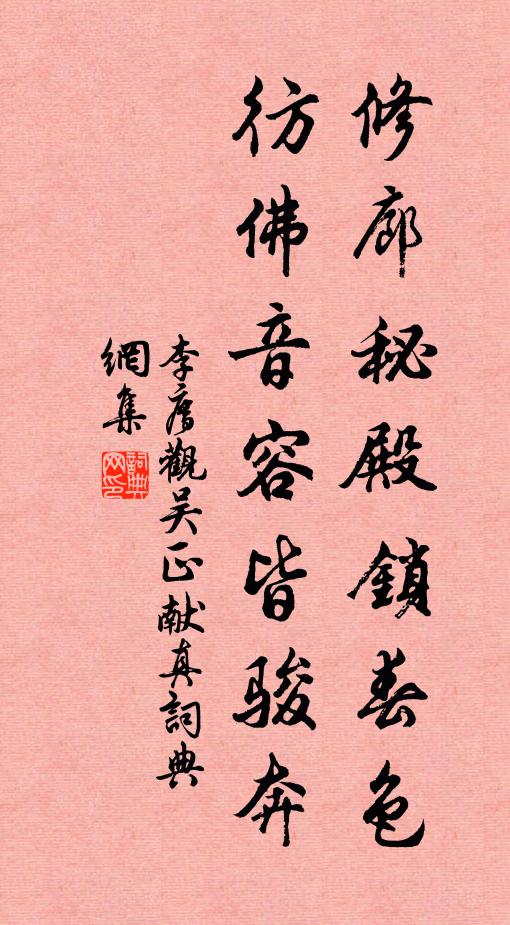 修廊秘殿鎖春色
彷佛音容皆駿奔
李廌觀吴正献真詞典
網集
詞典網印